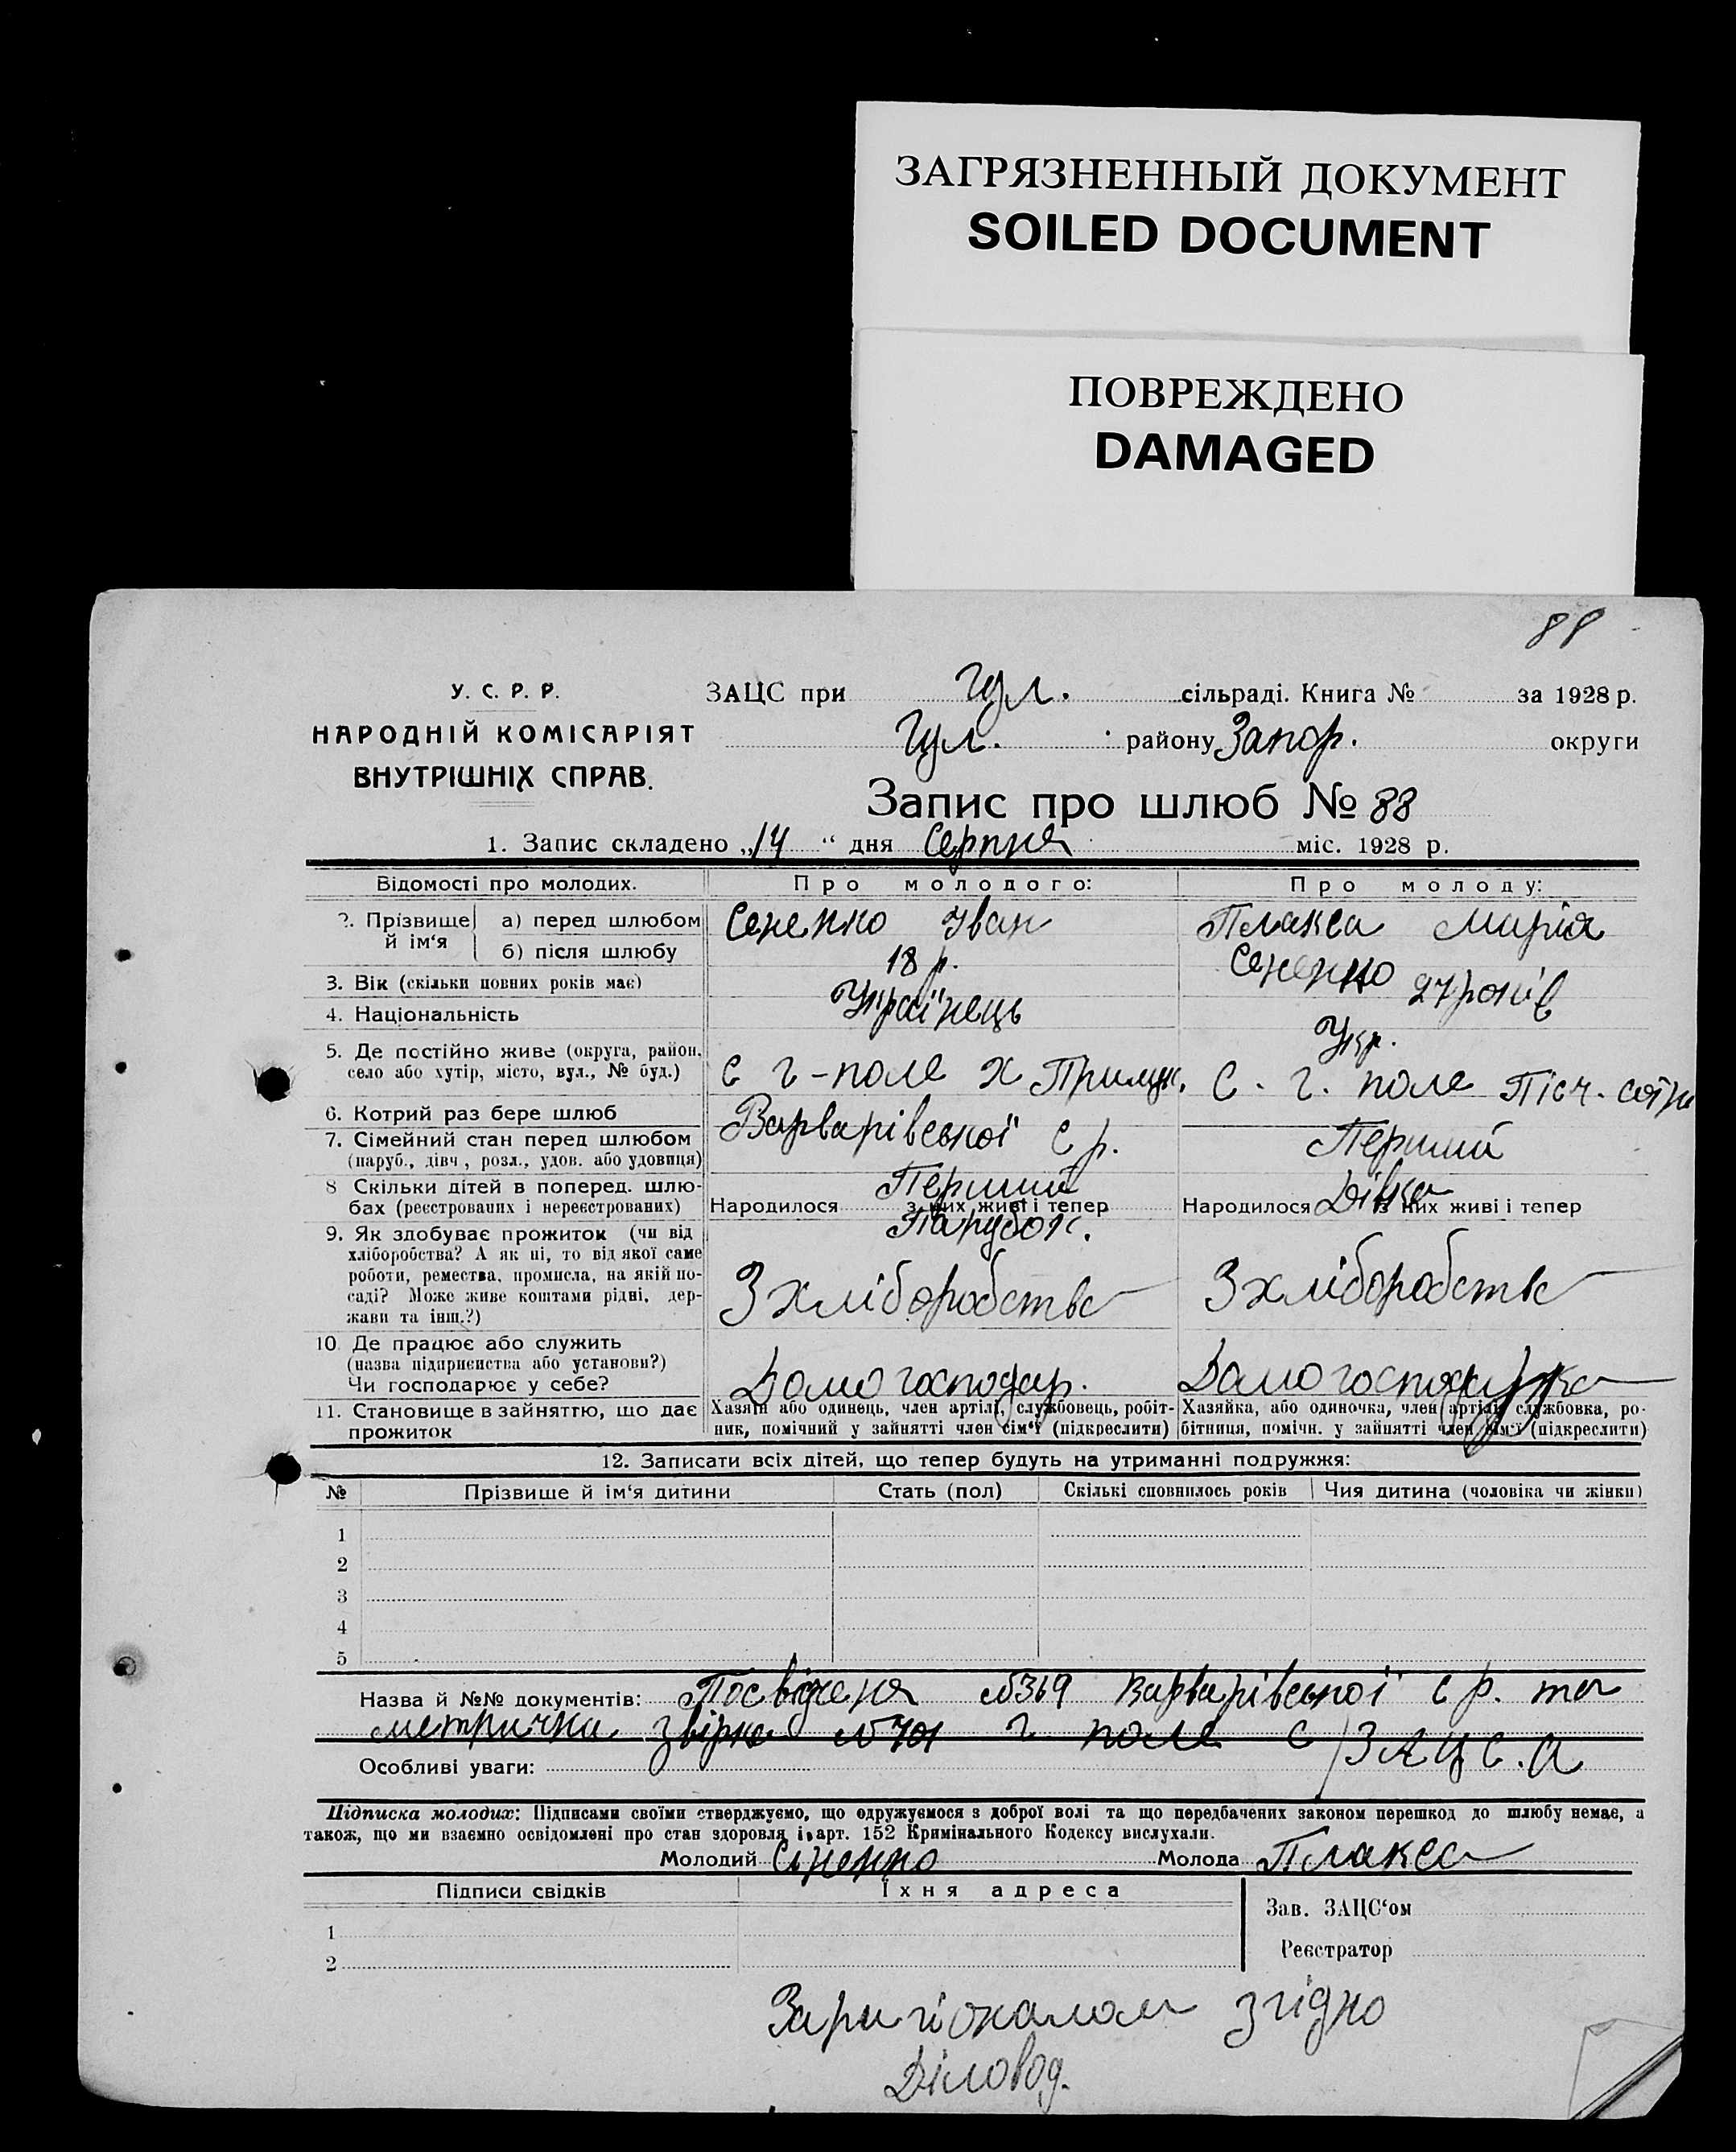 ЗАГРЯЗНЕННЫЙ ДОКУМЕНТ
SOILED DOCUMENT
ПОВРЕЖДЕНО
DAMAGED
88
У. С. Р. Р.
НАРОДНІЙ КОМІСАРІЯТ
ВНУТРІШНІХ СПРАВ.
ЗАЦС при Гул. сільраді. Книга № за 1928 р.
Гул. району Запор. округи
Запис про шлюб № 88
1. Запис складено „14“ дня Серпня міс. 1928 р.
Відомості про молодих. Про молодого: Про молоду:
2. Прізвище й ім‘я а) перед шлюбом Сененко Іван Плакса Марія
б) після шлюбу Сененко
3. Вік (скільки повних років має) 18 р. 27 років
4. Національність Українець Укр.
5. Де постійно живе (округа, район, село або хутір, місто, вул., № буд.) с г-поле х С. г. поле Піск. сотни
Варварівської с р.
6. Котрий раз бере шлюб Перший Перший
7. Сімейний стан перед шлюбом (паруб., дівч., розл., удов. або удовиця) Парубок. Дівка
8 Скільки дітей в поперед. шлюбах (реєстрованих і нереєстрованих) Народилося з них живі і тепер Народилося з них живі і тепер
9. Як здобуває прожиток (чи від хліборобства? А як ні, то від якої саме роботи, ремества, промисла, на якій посаді? Може живе коштами рідні, держави та інш.?) З хліборобства З хліборобства
10. Де працює або служить (назва підприємства або установи?) Чи господарює у себе? Домо господар. Домо господарка
11. Становище в зайняттю, що дає прожиток Хазяїн або одинець, член артілі, службовець, робітник, помічний у зайнятті член сім‘ї (підкреслити) Хазяйка, або одиночка, член артілі, службовка, робітниця, помічн. у зайнятті член сім‘ї (підкреслити)
12. Записати всіх дітей, що тепер будуть на утриманні подружжя:
№ Прізвише й ім‘я дитини Стать (пол) Скількі сповнилось років Чия дитина (чоловіка чи жінки)
1
2
3
4
5
Назва й №№ документів: Посвідченя №369 Варварівської с р. та
метрична звірка № 701 г. поле с / ЗАЦС.а
Особливі уваги:
Підписка молодих: Підписами своїми стверджуємо, що одружуємося з доброї волі та що передбачених законом перешкод до шлюбу немає, а
також, що ми взаємно освідомлені про стан здоровля і арт. 152 Кримінального Кодексу вислухали.
Молодий Сененко Молода Плакса
Підписи свідків Їхня адреса
Зав. ЗАЦС‘ом
1
Реєстратор
2
згідно
Діловод.